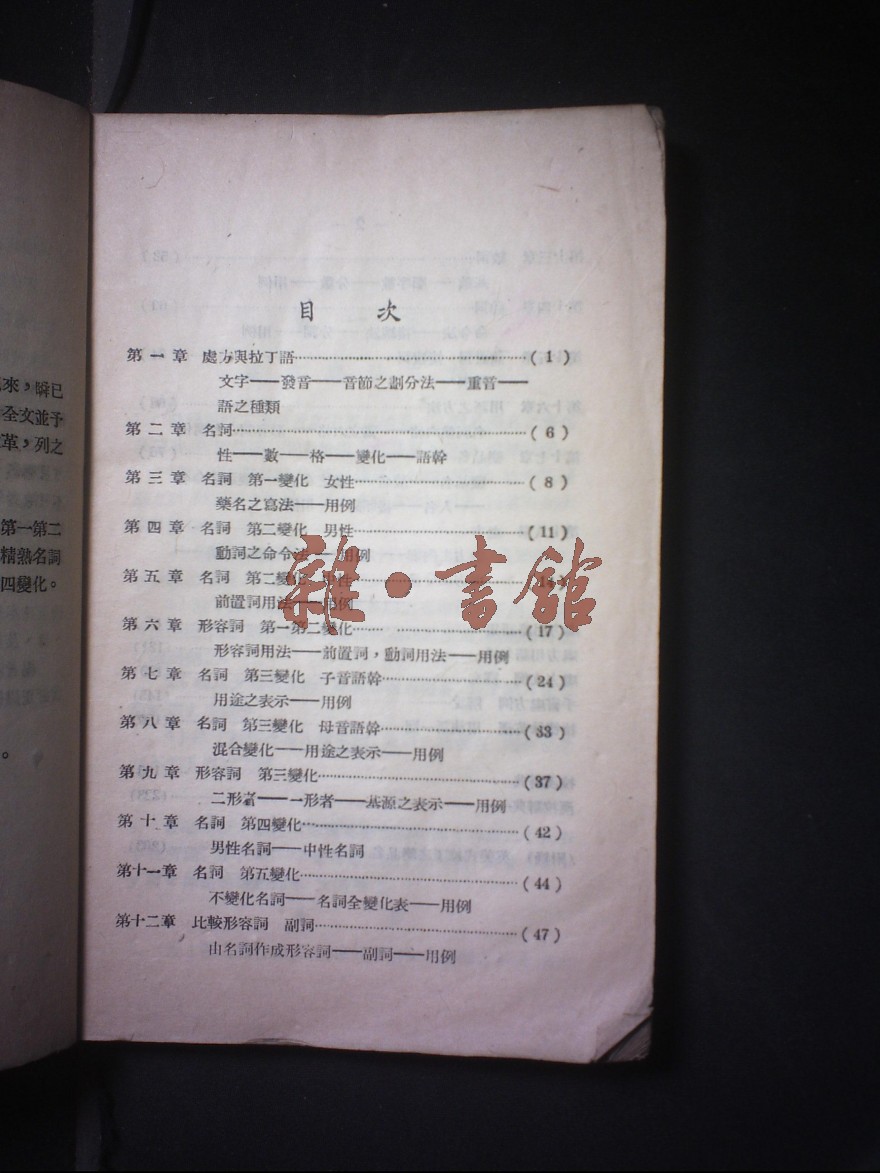 來，瞬已
全文並予
革，列之
第一第二
精熟名詞
四變化。
。
目 次
第一章 處方與拉丁語……(1)
文字——發音——音節之劃分法——重音——
語之種類
第二章 名詞……(6)
性——數——格——變化——語幹
第三章 名詞 第一變化 女性……(8)
藥名之寫法——用例
第四章 名詞 第二變化 男性……(11)
動詞之命令法——用例
第五章 名詞 第二變化 中性……
前置詞用法——用例
第六章 形容詞 第一第二變化……(17)
形容詞用法——前置詞，動詞用法——用例
第七章 名詞 第三變化 子音語幹……(24)
用途之表示——用例
第八章 名詞 第三變化 母音語幹……(33)
混合變化——用途之表示——用例
第九章 形容詞 第三變化……(37)
二形者——一形者——基源之表示——用例
第十章 名詞 第四變化……(42)
男性名詞——中性名詞
第十一章 名詞 第五變化……(44)
不變化名詞——名詞全變化表——用例
第十二章 比較形容詞 副詞……(47)
由名詞作成形容詞——副詞——用例
雜·書館